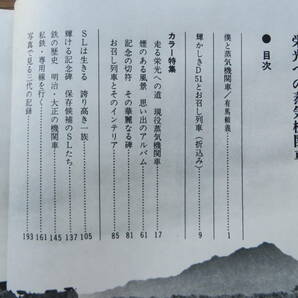 栄光の蒸気機関車
●目次
僕と蒸気機関車/有馬頼義 1
輝かしきD51とお召し列車(折込み) 9
カラー特集
走る栄光への道 現役蒸気機関車 17
煙のある風景 思い出のアルバム 61
記念の切符 その華麗なる碑 81
お召し列車とそのインテリア 85
SLは生きる 誇り高き一族 105
輝ける記念碑 保存候補のSLたち 137
鉄の歴史 明治・大正の機関車 145
私鉄・専用線を行く 161
写真で見る三代の記録 193